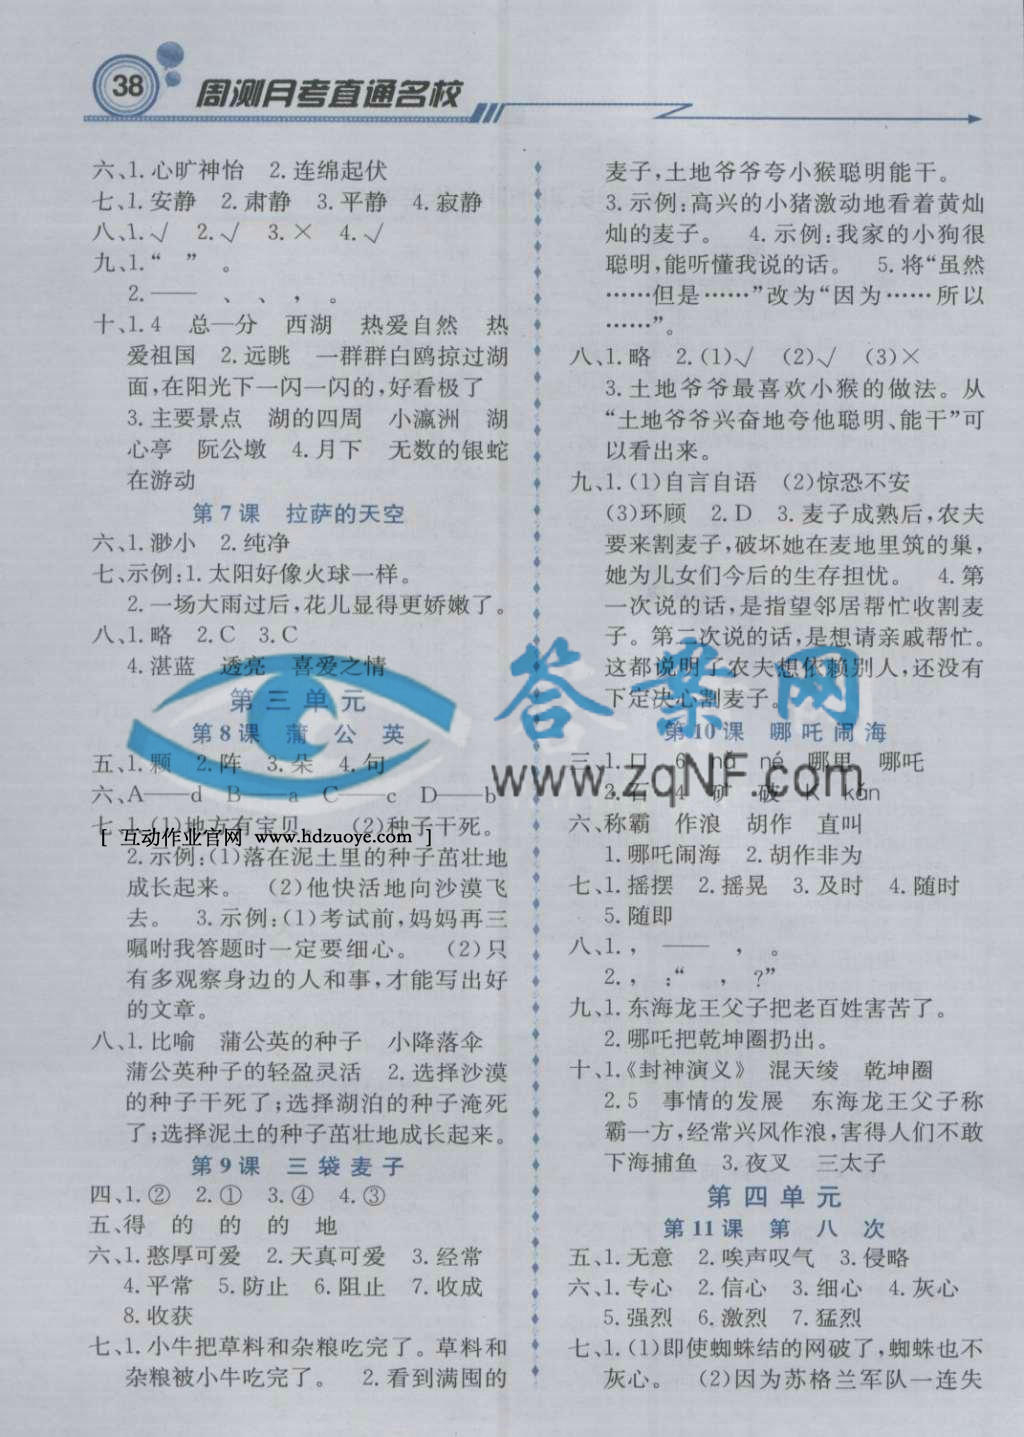 38
周测月考直通名校
六、1.心旷神怡 2.连绵起伏
七、1.安静 2.肃静 3.平静 4.寂静
八、1.√ 2.√ 3.× 4.√
九、1.“ ” 。
2.—— 、 、 , 。
十、1.4 总—分 西湖 热爱自然 热
爱祖国 2.远眺 一群群白鸥掠过湖
面,在阳光下一闪一闪的,好看极了
3.主要景点 湖的四周 小瀛洲 湖
心亭 阮公墩 4.月下 无数的银蛇
在游动
第7课 拉萨的天空
六、1.渺小 2.纯净
七、示例:1.太阳好像火球一样。
2.一场大雨过后,花儿显得更娇嫩了。
八、1.略 2.C 3.C
4.湛蓝 透亮 喜爱之情
第三单元
第8课 蒲公英
五、1.颗 2.阵 3.朵 4.句
六、A——d B——a C——c D——b
七、1.(1)地方有宝贝 (2)种子干死。
[ 互动作业官网 www.hdzuoye.com ]
2.示例:(1)落在泥土里的种子茁壮地
成长起来。 (2)他快活地向沙漠飞
去。 3.示例:(1)考试前,妈妈再三
嘱咐我答题时一定要细心。 (2)只
有多观察身边的人和事,才能写出好
的文章。
八、1.比喻 蒲公英的种子 小降落伞
蒲公英种子的轻盈灵活 2.选择沙漠
的种子干死了;选择湖泊的种子淹死
了;选择泥土的种子茁壮地成长起来。
第9课 三袋麦子
四、1.② 2.① 3.④ 4.③
五、得 的 的 的 地
六、1.憨厚可爱 2.天真可爱 3.经常
4.平常 5.防止 6.阻止 7.收成
8.收获
七、1.小牛把草料和杂粮吃完了。草料和
杂粮被小牛吃完了。 2.看到满囤的
麦子,土地爷爷夸小猴聪明能干。
3.示例:高兴的小猪激动地看着黄灿
灿的麦子。 4.示例:我家的小狗很
聪明,能听懂我说的话。 5.将“虽然
……但是……”改为“因为……所以
……”。
八、1.略 2.(1)√ (2)√ (3)×
3.土地爷爷最喜欢小猴的做法。从
“土地爷爷兴奋地夸他聪明、能干”可
以看出来。
九、1.(1)自言自语 (2)惊恐不安
(3)环顾 2.D 3.麦子成熟后,农夫
要来割麦子,破坏她在麦地里筑的巢,
她为儿女们今后的生存担忧。 4.第
一次说的话,是指望邻居帮忙收割麦
子。第二次说的话,是想请亲戚帮忙。
这都说明了农夫想依赖别人,还没有
下定决心割麦子。
答案网
www.zqNF.com
第10课 哪吒闹海
三、1.口 6 nǎ né 哪里 哪吒
2.石 4 矿 破 K kǎn
六、称霸 作浪 胡作 直叫
1.哪吒闹海 2.胡作非为
七、1.摇摆 2.摇晃 3.及时 4.随时
5.随即
八、1., —— , 。
2., :“ , ?”
九、1.东海龙王父子把老百姓害苦了。
2.哪吒把乾坤圈扔出。
十、1.《封神演义》 混天绫 乾坤圈
2.5 事情的发展 东海龙王父子称
霸一方,经常兴风作浪,害得人们不敢
下海捕鱼 3.夜叉 三太子
第四单元
第11课 第八次
五、1.无意 2.唉声叹气 3.侵略
六、1.专心 2.信心 3.细心 4.灰心
5.强烈 6.激烈 7.猛烈
七、1.(1)即使蜘蛛结的网破了,蜘蛛也不
灰心。 (2)因为苏格兰军队一连失